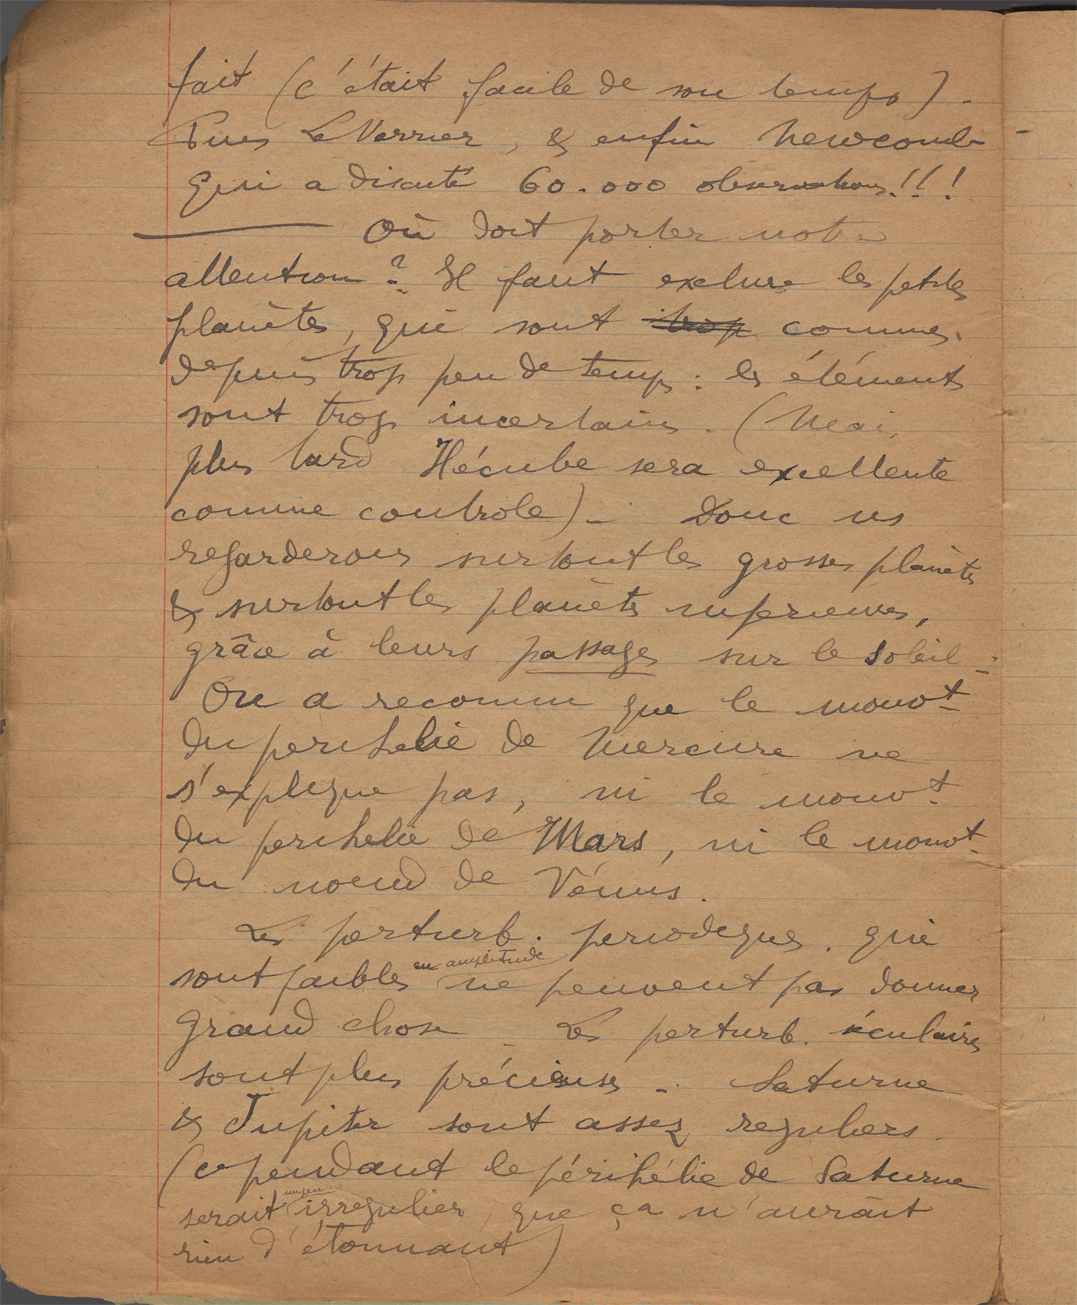 fait (c'était facile de son temps).
Puis Le Verrier, & enfin Newcomb
qui a discuté 60.000 observations!!!
Où doit porter notre
attention? Il faut exclure les petites
planètes, qui sont trop connues
depuis trop peu de temps : les éléments
sont trop incertains. (Mais
plus tard Hécube sera excellente
comme controle) _ Donc ns
regarderons surtout les grosses planètes
& surtout les planètes inferieures,
grâce à leurs passages sur le Soleil _
On a reconnu que le mouvt
du perihelie de Mercure ne
s'explique pas, ni le mouvt
du perihelie de Mars, ni le mouvt
du noeud de Vénus.
Les perturb. periodiques. qui
sont faibles en amplitude ne peuvent pas donner
grand chose _ Les perturb. séculaires
sont plus précieuses _ . Saturne
& Jupiter sont assez reguliers.
(cependant le périhélie de Saturne
serait un peu irregulier, que ça n'aurait
rien d'étonnant)